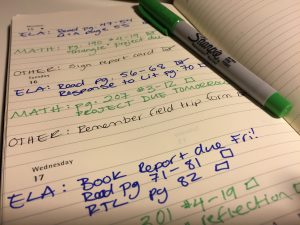 ELA: Read pg 47-54
MATH: pg 190 #4-19
Triangle project due
OTHER: Sign report card
16
ELA: Read pg. 56-68
Response to Lit pg. 70
MATH: pg. 207 #3-12
PROJECT DUE TOMORROW
OTHER: Remember field trip form
Wednesday
17
ELA: Book Report due Fri!
Read pg 71-81
RTL pg 82
201 #4-19
reflection
Sharpie